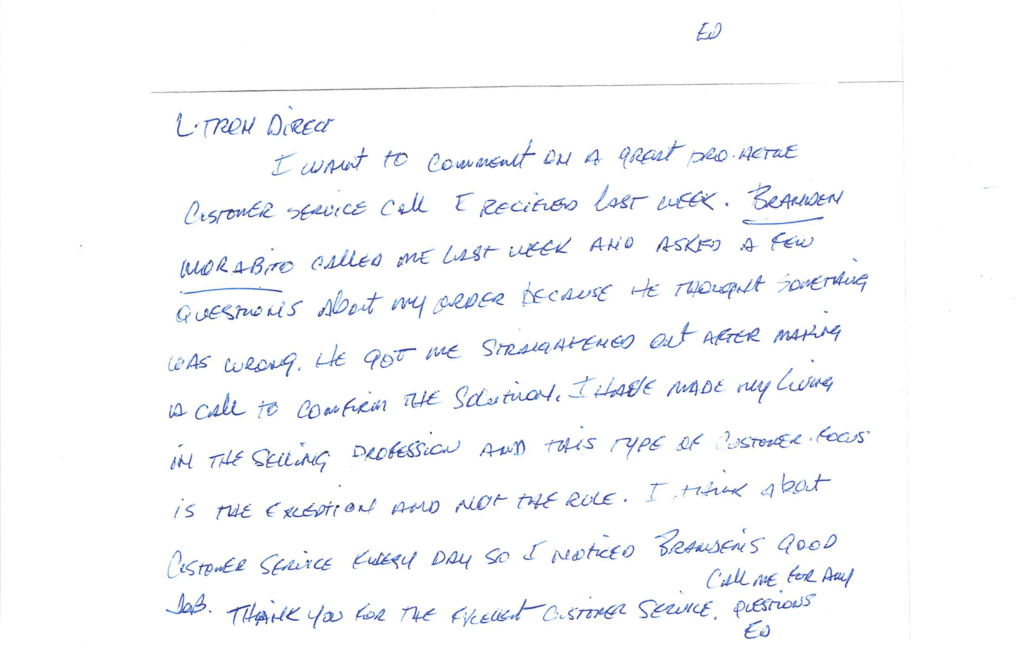 Ed
L-TRON DIRECT
I WANT TO COMMENT ON A GREAT PRO-ACTIVE
CUSTOMER SERVICE CALL I RECIEVED LAST WEEK. BRANDEN
MORABITO CALLED ME LAST WEEK AND ASKED A FEW
QUESTIONS ABOUT MY ORDER BECAUSE HE THOUGHT SOMETHING
WAS WRONG. HE GOT ME STRAIGHTENED OUT AFTER MAKING
A CALL TO CONFIRM THE SOLUTION. I HAVE MADE MY LIVING
IN THE SELLING PROFESSION AND THIS TYPE OF CUSTOMER-FOCUS
IS THE EXCEPTION AND NOT THE RULE. I THINK ABOUT
CUSTOMER SERVICE EVERY DAY SO I NOTICED BRANDEN'S GOOD
JOB. THANK YOU FOR THE EXCELLENT CUSTOMER SERVICE.
CALL ME FOR ANY
QUESTIONS
Ed